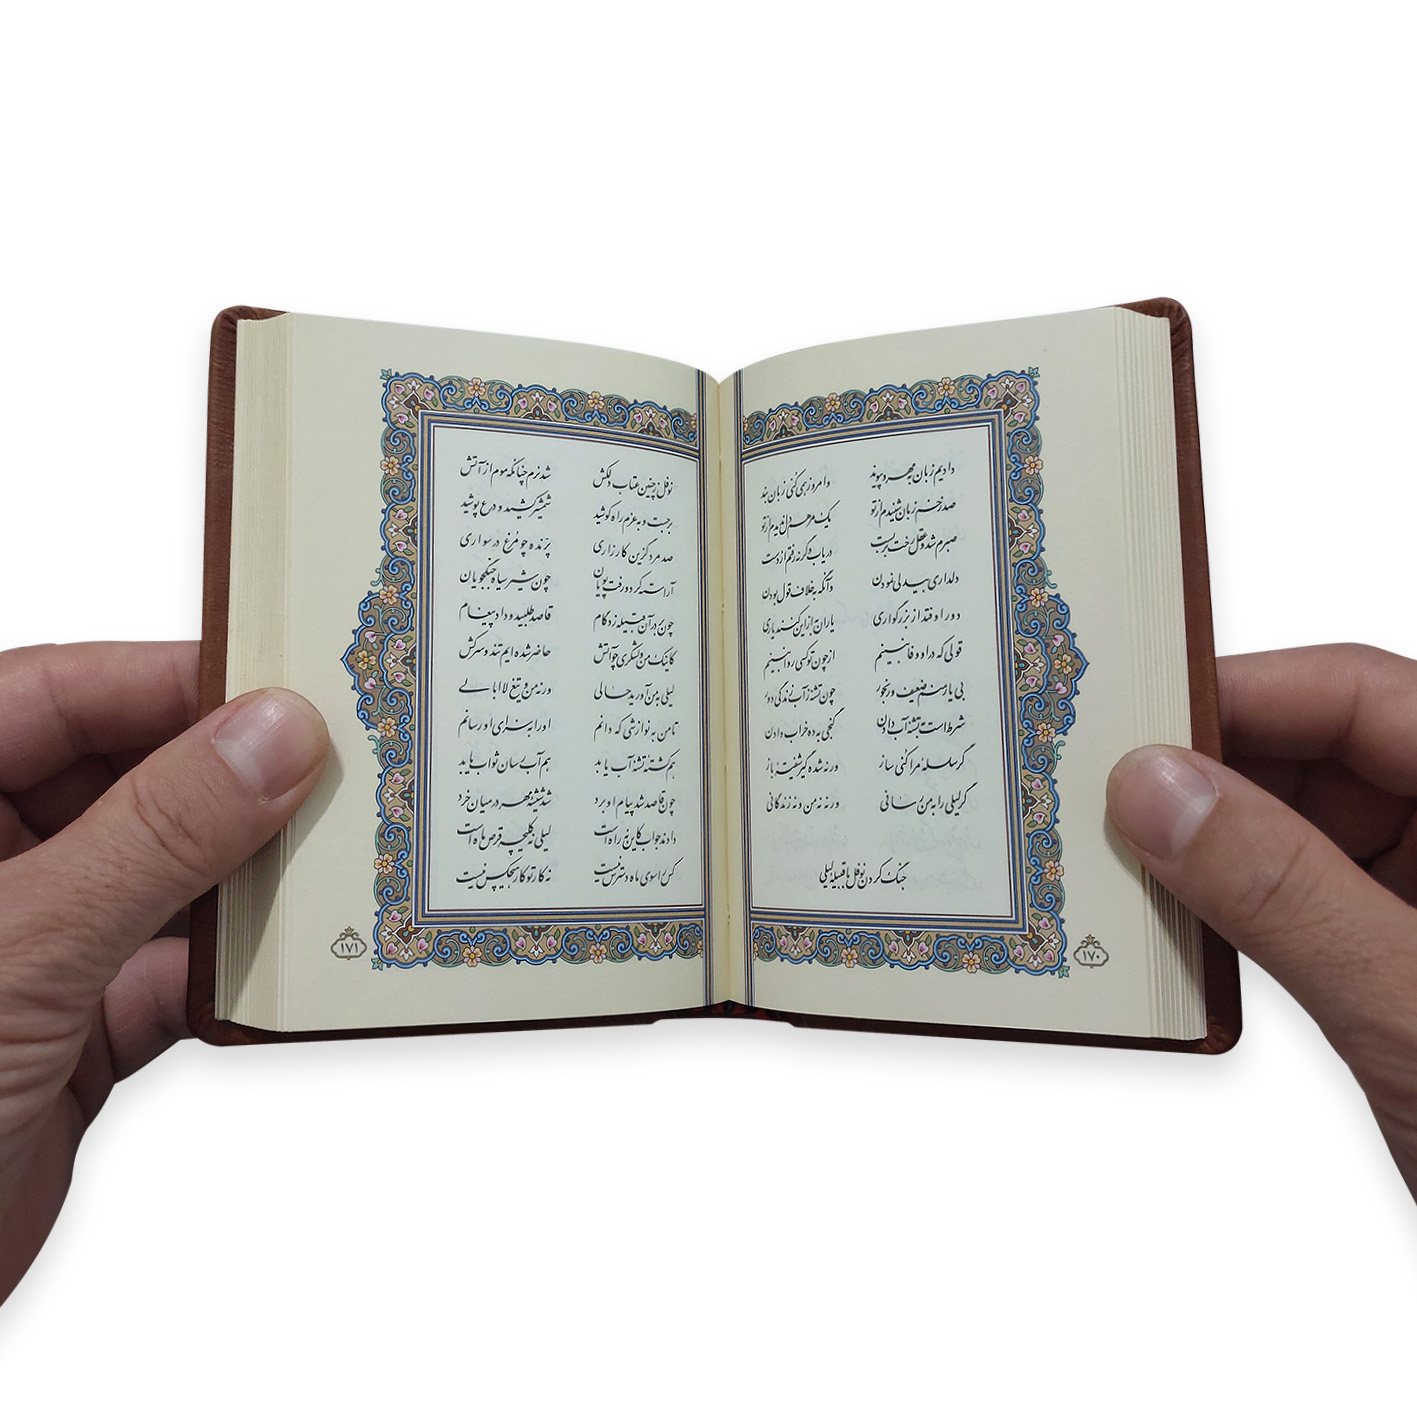 دادیم زبان به مهر و پیوند وامروز همی کنی زبان بند
صد زخم زبان شنیدم از تو یک مرهم دل ندیدم از تو
صبرم شد و عقل رخت بربست دریاب وگرنه رفتم از دست
دلداری بیدلی نمودن وآنگه به خلاف قول بودن
دور اوفتد از بزرگواری یاران به ازین کنند یاری
قولی که در او وفا نبینم از چون تو کسی روا نبینم
بی یار منم ضعیف و رنجور چون تشنه ز آب زندگی دور
شرط است به تشنه آب دادن گنجی به ده خراب دادن
گر سلسلهٔ مرا کنی ساز ورنه شده گیر شیفته باز
گر لیلی را به من رسانی ورنه نه من و نه زندگانی
جنگ کردن نوفل با قبیله لیلی
۱۷۰
نوفل ز چنین عتاب دلکش شد نرم چنانکه موم از آتش
برجست و به عزم راه کوشید شمشیر کشید و درع پوشید
صد مرد گزین کارزاری پرّنده چو مرغ در سواری
آراسته کرد و رفت پویان چون شیر سیاه جنگجویان
چون بر در آن قبیله زد گام قاصد طلبید و داد پیغام
کاینک من و لشگری چو آتش حاضر شده ایم تند و سرکش
لیلی به من آورید حالی ورنه من و تیغ لاابالی
تا من به نوازشی که دانم او را به سزای او رسانم
هم کشتهٔ تشنه آب یابد هم آب رسان ثواب یابد
چون قاصد شد پیام او برد شد شیشهٔ مهر در میان خرد
دادند جواب کاین نه راه است لیلی نه کلیچه قرص ماه است
کس را سوی ماه دسترس نیست نه کار تو کار هیچکس نیست
۱۷۱